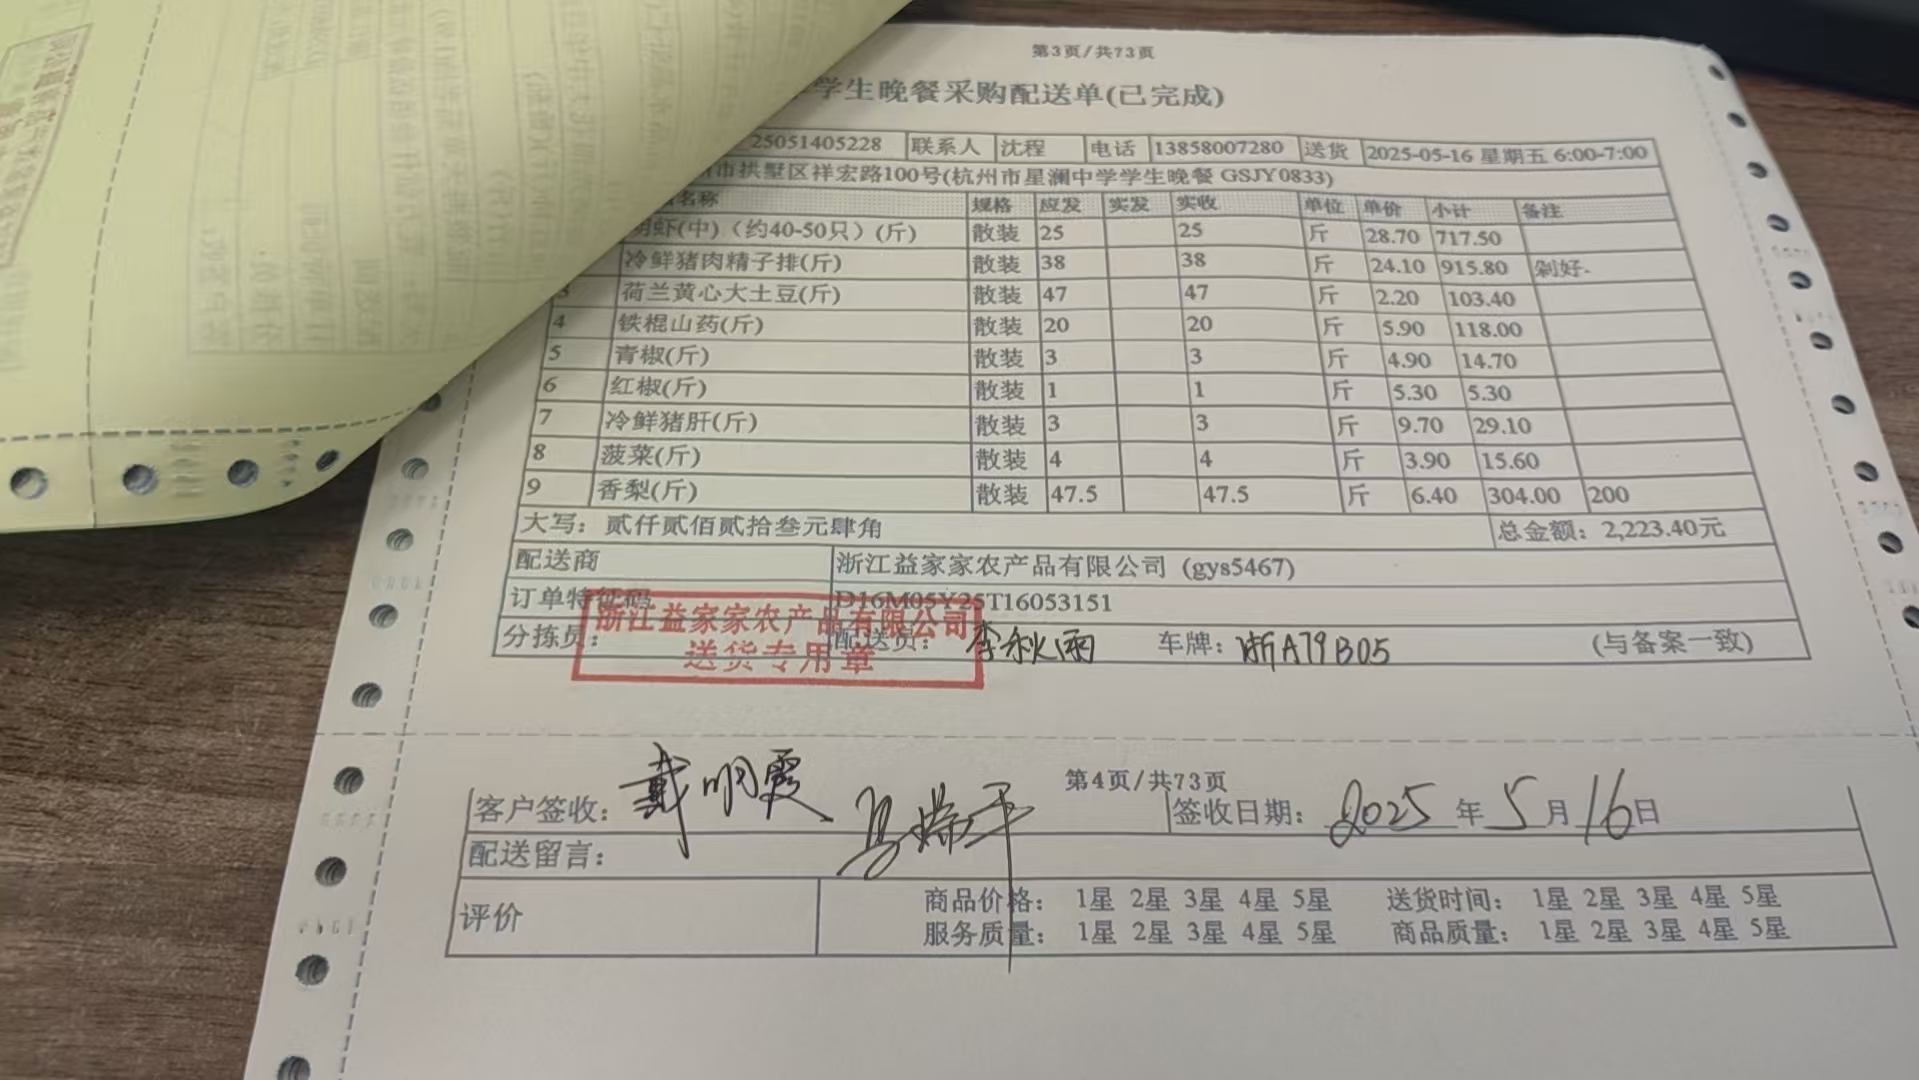 第3页/共73页
学生晚餐采购配送单(已完成)
25051405228 联系人 沈程 电话 13858007280 送货 2025-05-16 星期五 6:00-7:00
市拱墅区祥宏路100号(杭州市星澜中学学生晚餐 GSJY0833)
名称 规格 应发 实发 实收 单位 单价 小计 备注
虾(中)（约40-50只）(斤) 散装 25 25 斤 28.70 717.50
冷鲜猪肉精子排(斤) 散装 38 38 斤 24.10 915.80 剁好.
3 荷兰黄心大土豆(斤) 散装 47 47 斤 2.20 103.40
4 铁棍山药(斤) 散装 20 20 斤 5.90 118.00
5 青椒(斤) 散装 3 3 斤 4.90 14.70
6 红椒(斤) 散装 1 1 斤 5.30 5.30
7 冷鲜猪肝(斤) 散装 3 3 斤 9.70 29.10
8 菠菜(斤) 散装 4 4 斤 3.90 15.60
9 香梨(斤) 散装 47.5 47.5 斤 6.40 304.00 200
大写：贰仟贰佰贰拾叁元肆角 总金额：2,223.40元
配送商 浙江益家家农产品有限公司 (gys5467)
订单特征码 D16M05Y25T16053151
浙江益家家农产品有限公司
分拣员： 配送员：李秋雨 车牌：浙A79B05 (与备案一致)
送货专用章
第4页/共73页
客户签收：戴明霞 签收日期：2025年5月16日
配送留言：
评价 商品价格： 1星 2星 3星 4星 5星 送货时间： 1星 2星 3星 4星 5星
服务质量： 1星 2星 3星 4星 5星 商品质量： 1星 2星 3星 4星 5星